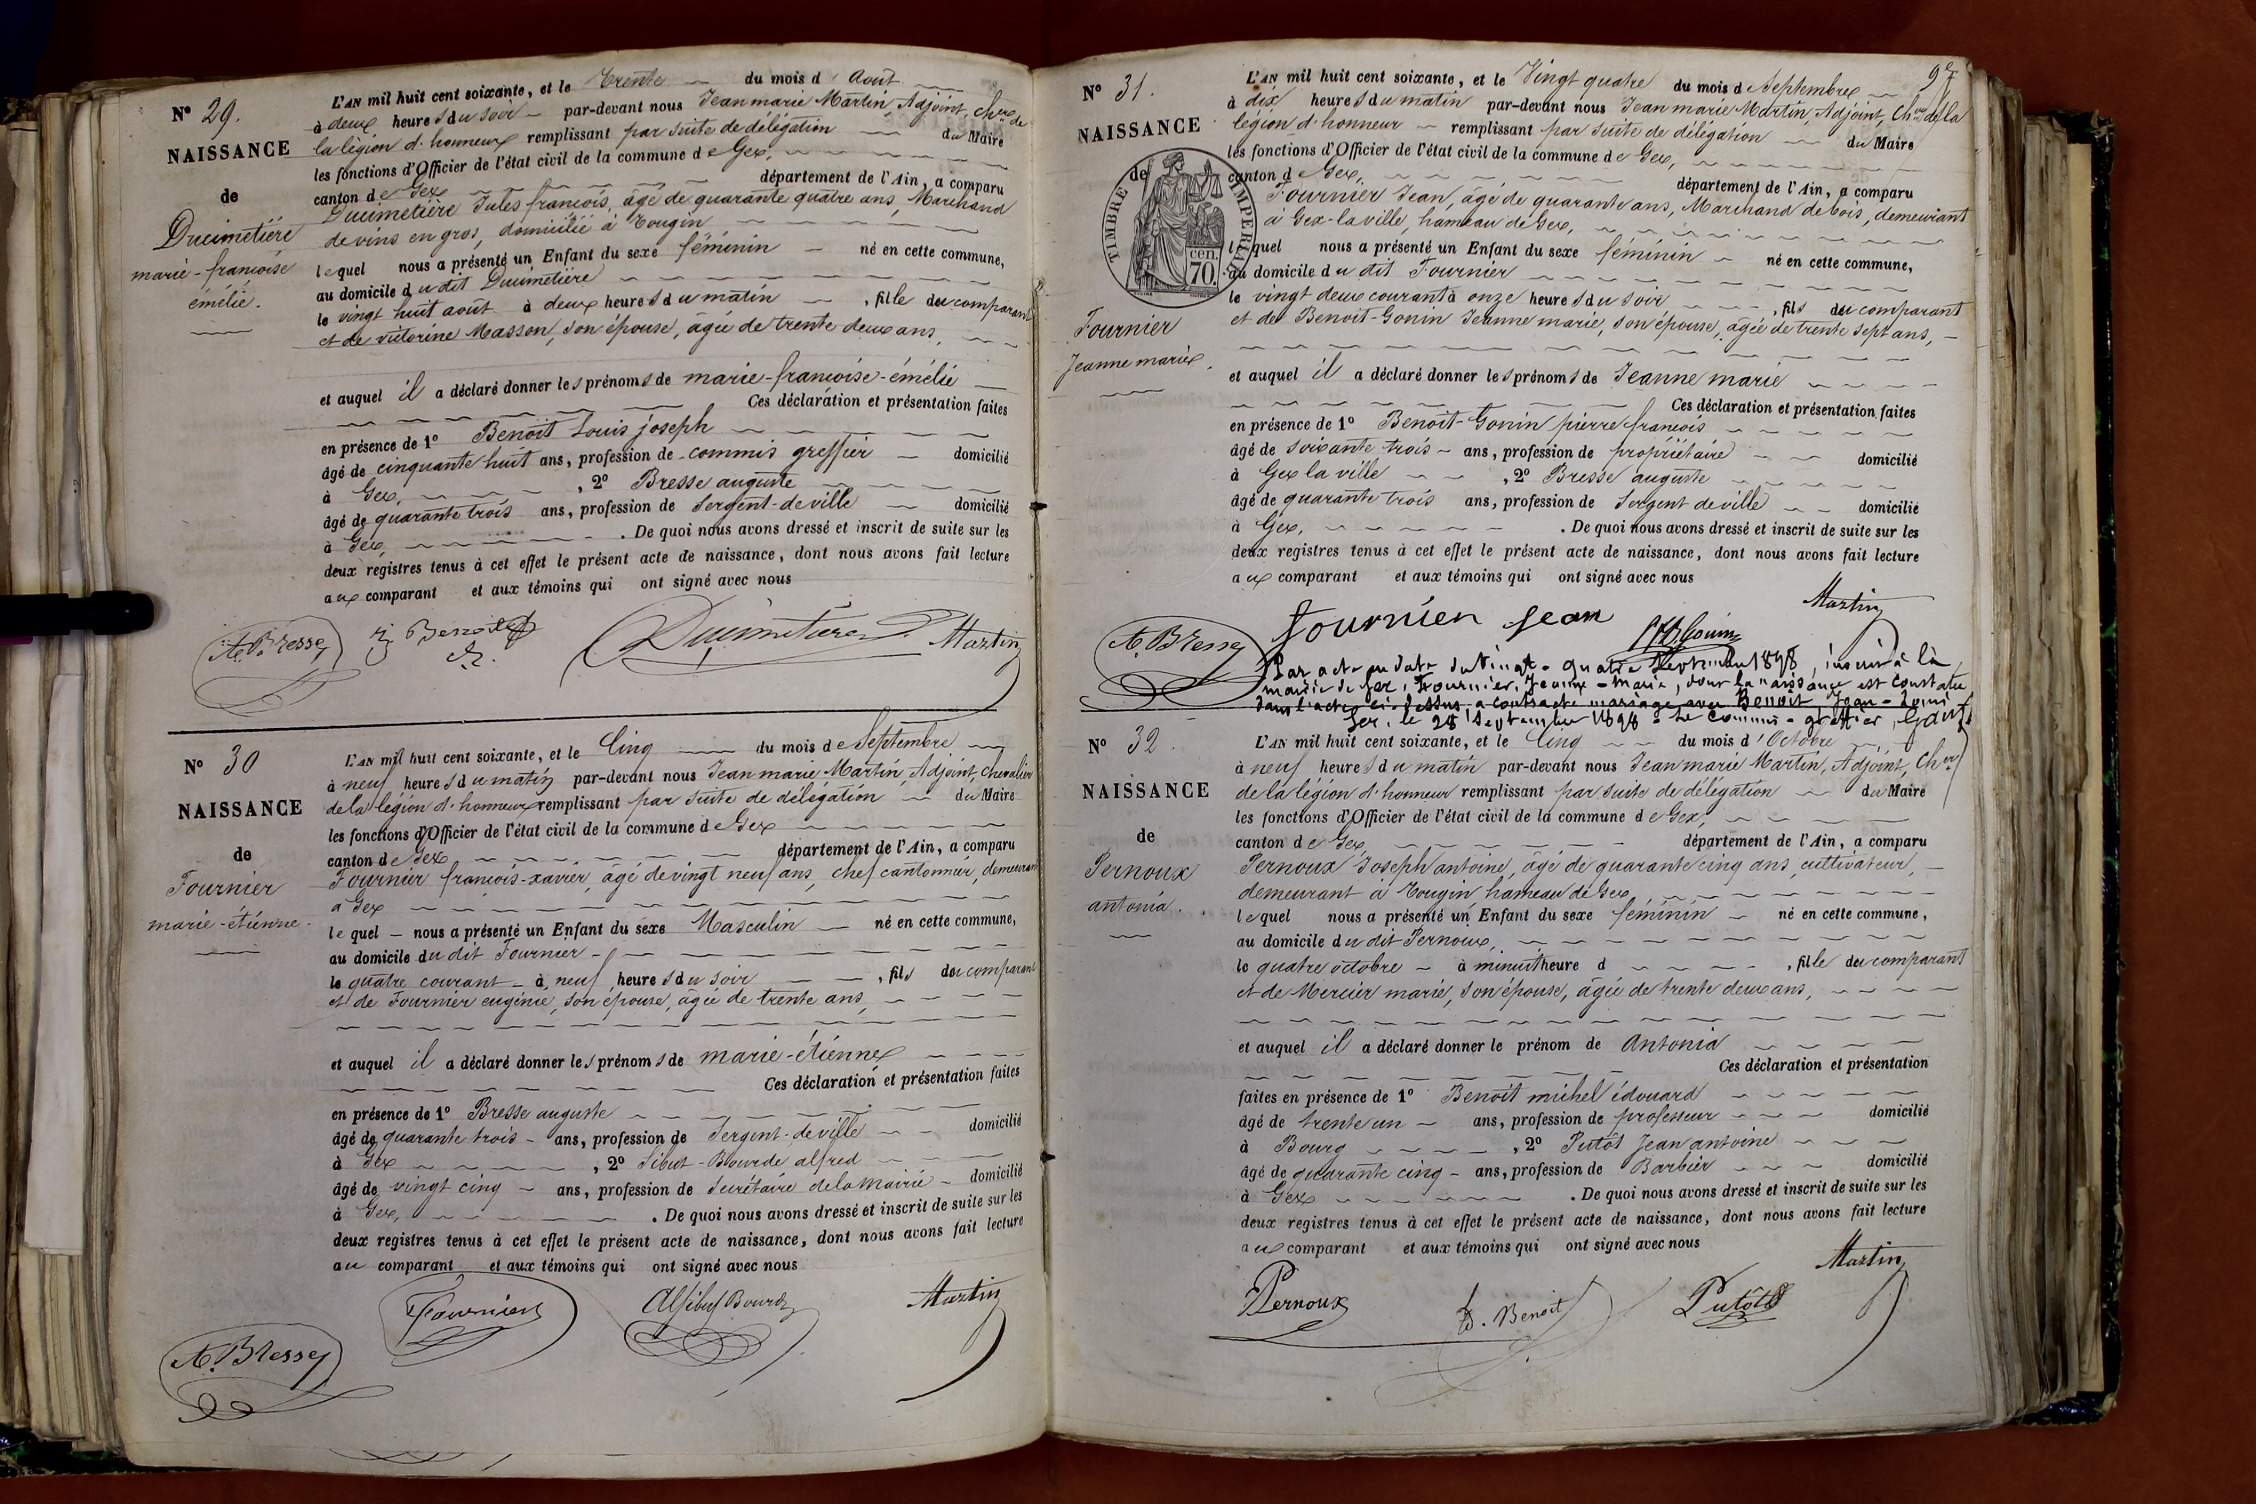 N° 29.
NAISSANCE
de
Ducimetière
marie-françoise
émélie.
L'AN mil huit cent soixante, et le Trente du mois d'Août
à deux heures du soir par-devant nous Jean marie Martin, Adjoint, Cher de
la légion d'honneur remplissant par suite de délégation du Maire
les fonctions d'Officier de l'état civil de la commune de Gex,
canton de Gex département de l'Ain, a comparu
Ducimetière Jules françois, âgé de quarante quatre ans, Marchand
de vins en gros, domicilié à Tougin
lequel nous a présenté un Enfant du sexe féminin né en cette commune,
au domicile du dit Ducimetière
le vingt huit août à deux heures du matin, fille du comparant
et de victorine Masson, son épouse, âgée de trente deux ans,
et auquel il a déclaré donner les prénoms de marie-françoise-émélie
Ces déclaration et présentation faites
en présence de 1° Benoit Louis joseph
âgé de cinquante huit ans, profession de commis greffier domicilié
à Gex, , 2° Bresse auguste
âgé de quarante trois ans, profession de Sergent-de-ville domicilié
à Gex, . De quoi nous avons dressé et inscrit de suite sur les
deux registres tenus à cet effet le présent acte de naissance, dont nous avons fait lecture
aux comparant et aux témoins qui ont signé avec nous
A. Bresse Benoit Ducimetière Martin
N° 30
NAISSANCE
de
Fournier
marie-étienne.
L'AN mil huit cent soixante, et le Cinq du mois de Septembre
à neuf heures du matin par-devant nous Jean marie Martin, Adjoint, Chevalier
de la légion d'honneur remplissant par suite de délégation du Maire
les fonctions d'Officier de l'état civil de la commune de Gex
canton de Gex département de l'Ain, a comparu
Fournier françois-xavier, âgé de vingt neuf ans, chef cantonnier, demeurant
à Gex
lequel nous a présenté un Enfant du sexe Masculin né en cette commune,
au domicile du dit Fournier
le quatre courant à neuf heures du soir, fils du comparant
et de Fournier eugénie, son épouse, âgée de trente ans,
et auquel il a déclaré donner les prénoms de marie-étienne
Ces déclaration et présentation faites
en présence de 1° Bresse auguste
âgé de quarante trois ans, profession de Sergent-de-ville domicilié
à Gex , 2° Sibut-Bourde alfred
âgé de vingt cinq ans, profession de Secrétaire de la Mairie domicilié
à Gex, . De quoi nous avons dressé et inscrit de suite sur les
deux registres tenus à cet effet le présent acte de naissance, dont nous avons fait lecture
au comparant et aux témoins qui ont signé avec nous
Fournier Al Sibut Bourde Martin
A. Bresse
9e
N° 31.
NAISSANCE
de
TIMBRE IMPERIAL
70 cen.
Fournier
Jeanne marie.
L'AN mil huit cent soixante, et le Vingt quatre du mois de Septembre
à dix heures du matin par-devant nous Jean marie Martin, Adjoint, Cher de la
légion d'honneur remplissant par suite de délégation du Maire
les fonctions d'Officier de l'état civil de la commune de Gex,
canton de Gex, département de l'Ain, a comparu
Fournier Jean, âgé de quarante ans, Marchand de bois, demeurant
à Gex-la ville, hameau de Gex,
lequel nous a présenté un Enfant du sexe féminin né en cette commune,
au domicile du dit Fournier
le vingt deux courant à onze heures du soir, fils du comparant
et de Benoit-Gonin Jeanne marie, son épouse, âgée de trente sept ans,
et auquel il a déclaré donner les prénoms de Jeanne marie
Ces déclaration et présentation faites
en présence de 1° Benoit-Gonin pierre françois
âgé de soixante trois ans, profession de propriétaire domicilié
à Gex la ville , 2° Bresse auguste
âgé de quarante trois ans, profession de Sergent de ville domicilié
à Gex, . De quoi nous avons dressé et inscrit de suite sur les
deux registres tenus à cet effet le présent acte de naissance, dont nous avons fait lecture
aux comparant et aux témoins qui ont signé avec nous
A. Bresse fournier jean Gonin Martin
Par acte en date du vingt-quatre Septembre 1898, inscrit à la
mairie de Gex, Fournier, Jeanne-Marie, dont la naissance est constatée
dans l'acte ci-dessus a contracté mariage avec Benoît, Jean-Louis
Gex, le 28 Septembre 1898 - Le Commis-greffier,
N° 32.
NAISSANCE
de
Pernoux
antonia.
L'AN mil huit cent soixante, et le Cinq du mois d'Octobre
à neuf heures du matin par-devant nous Jean marie Martin, Adjoint, Cher
de la légion d'honneur remplissant par suite de délégation du Maire
les fonctions d'Officier de l'état civil de la commune de Gex,
canton de Gex, département de l'Ain, a comparu
Pernoux Joseph antoine, âgé de quarante cinq ans, cultivateur,
demeurant à Tougin, hameau de Gex,
lequel nous a présenté un Enfant du sexe féminin né en cette commune,
au domicile du dit Pernoux,
le quatre octobre à minuit heure d , fille du comparant
et de Mercier marie, son épouse, âgée de trente deux ans,
et auquel il a déclaré donner le prénom de Antonia
Ces déclaration et présentation
faites en présence de 1° Benoit michel édouard
âgé de trente un ans, profession de professeur domicilié
à Bourg , 2° Putôt Jean antoine
âgé de quarante cinq ans, profession de Barbier domicilié
à Gex . De quoi nous avons dressé et inscrit de suite sur les
deux registres tenus à cet effet le présent acte de naissance, dont nous avons fait lecture
aux comparant et aux témoins qui ont signé avec nous
Pernoux E. Benoit Putôt Martin